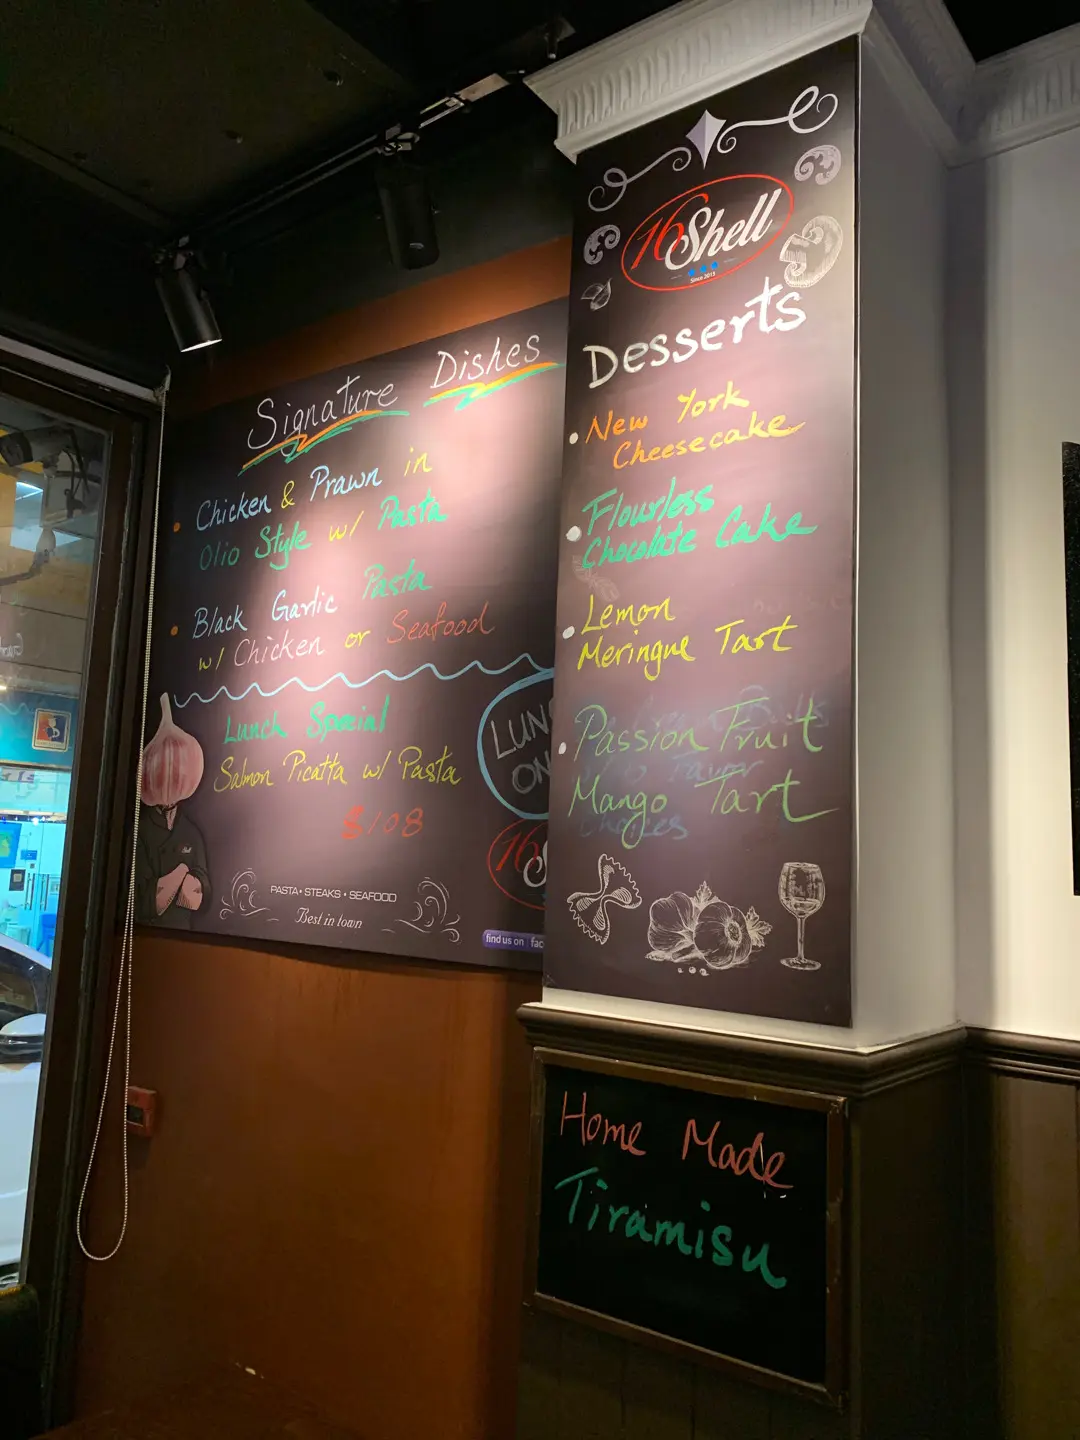 Signature Dishes
Chicken & Prawn in
Olio Style w/ Pasta
Black Garlic Pasta
w/ Chicken or Seafood
Lunch Special
Salmon Picatta w/ Pasta
$108
PASTA • STEAKS • SEAFOOD
Best in town
find us on
16
16 Shell
Since 2015
Desserts
New York
Cheesecake
Flourless
Chocolate Cake
Lemon
Meringue Tart
Passion Fruit
Mango Tart
Home Made
Tiramisu